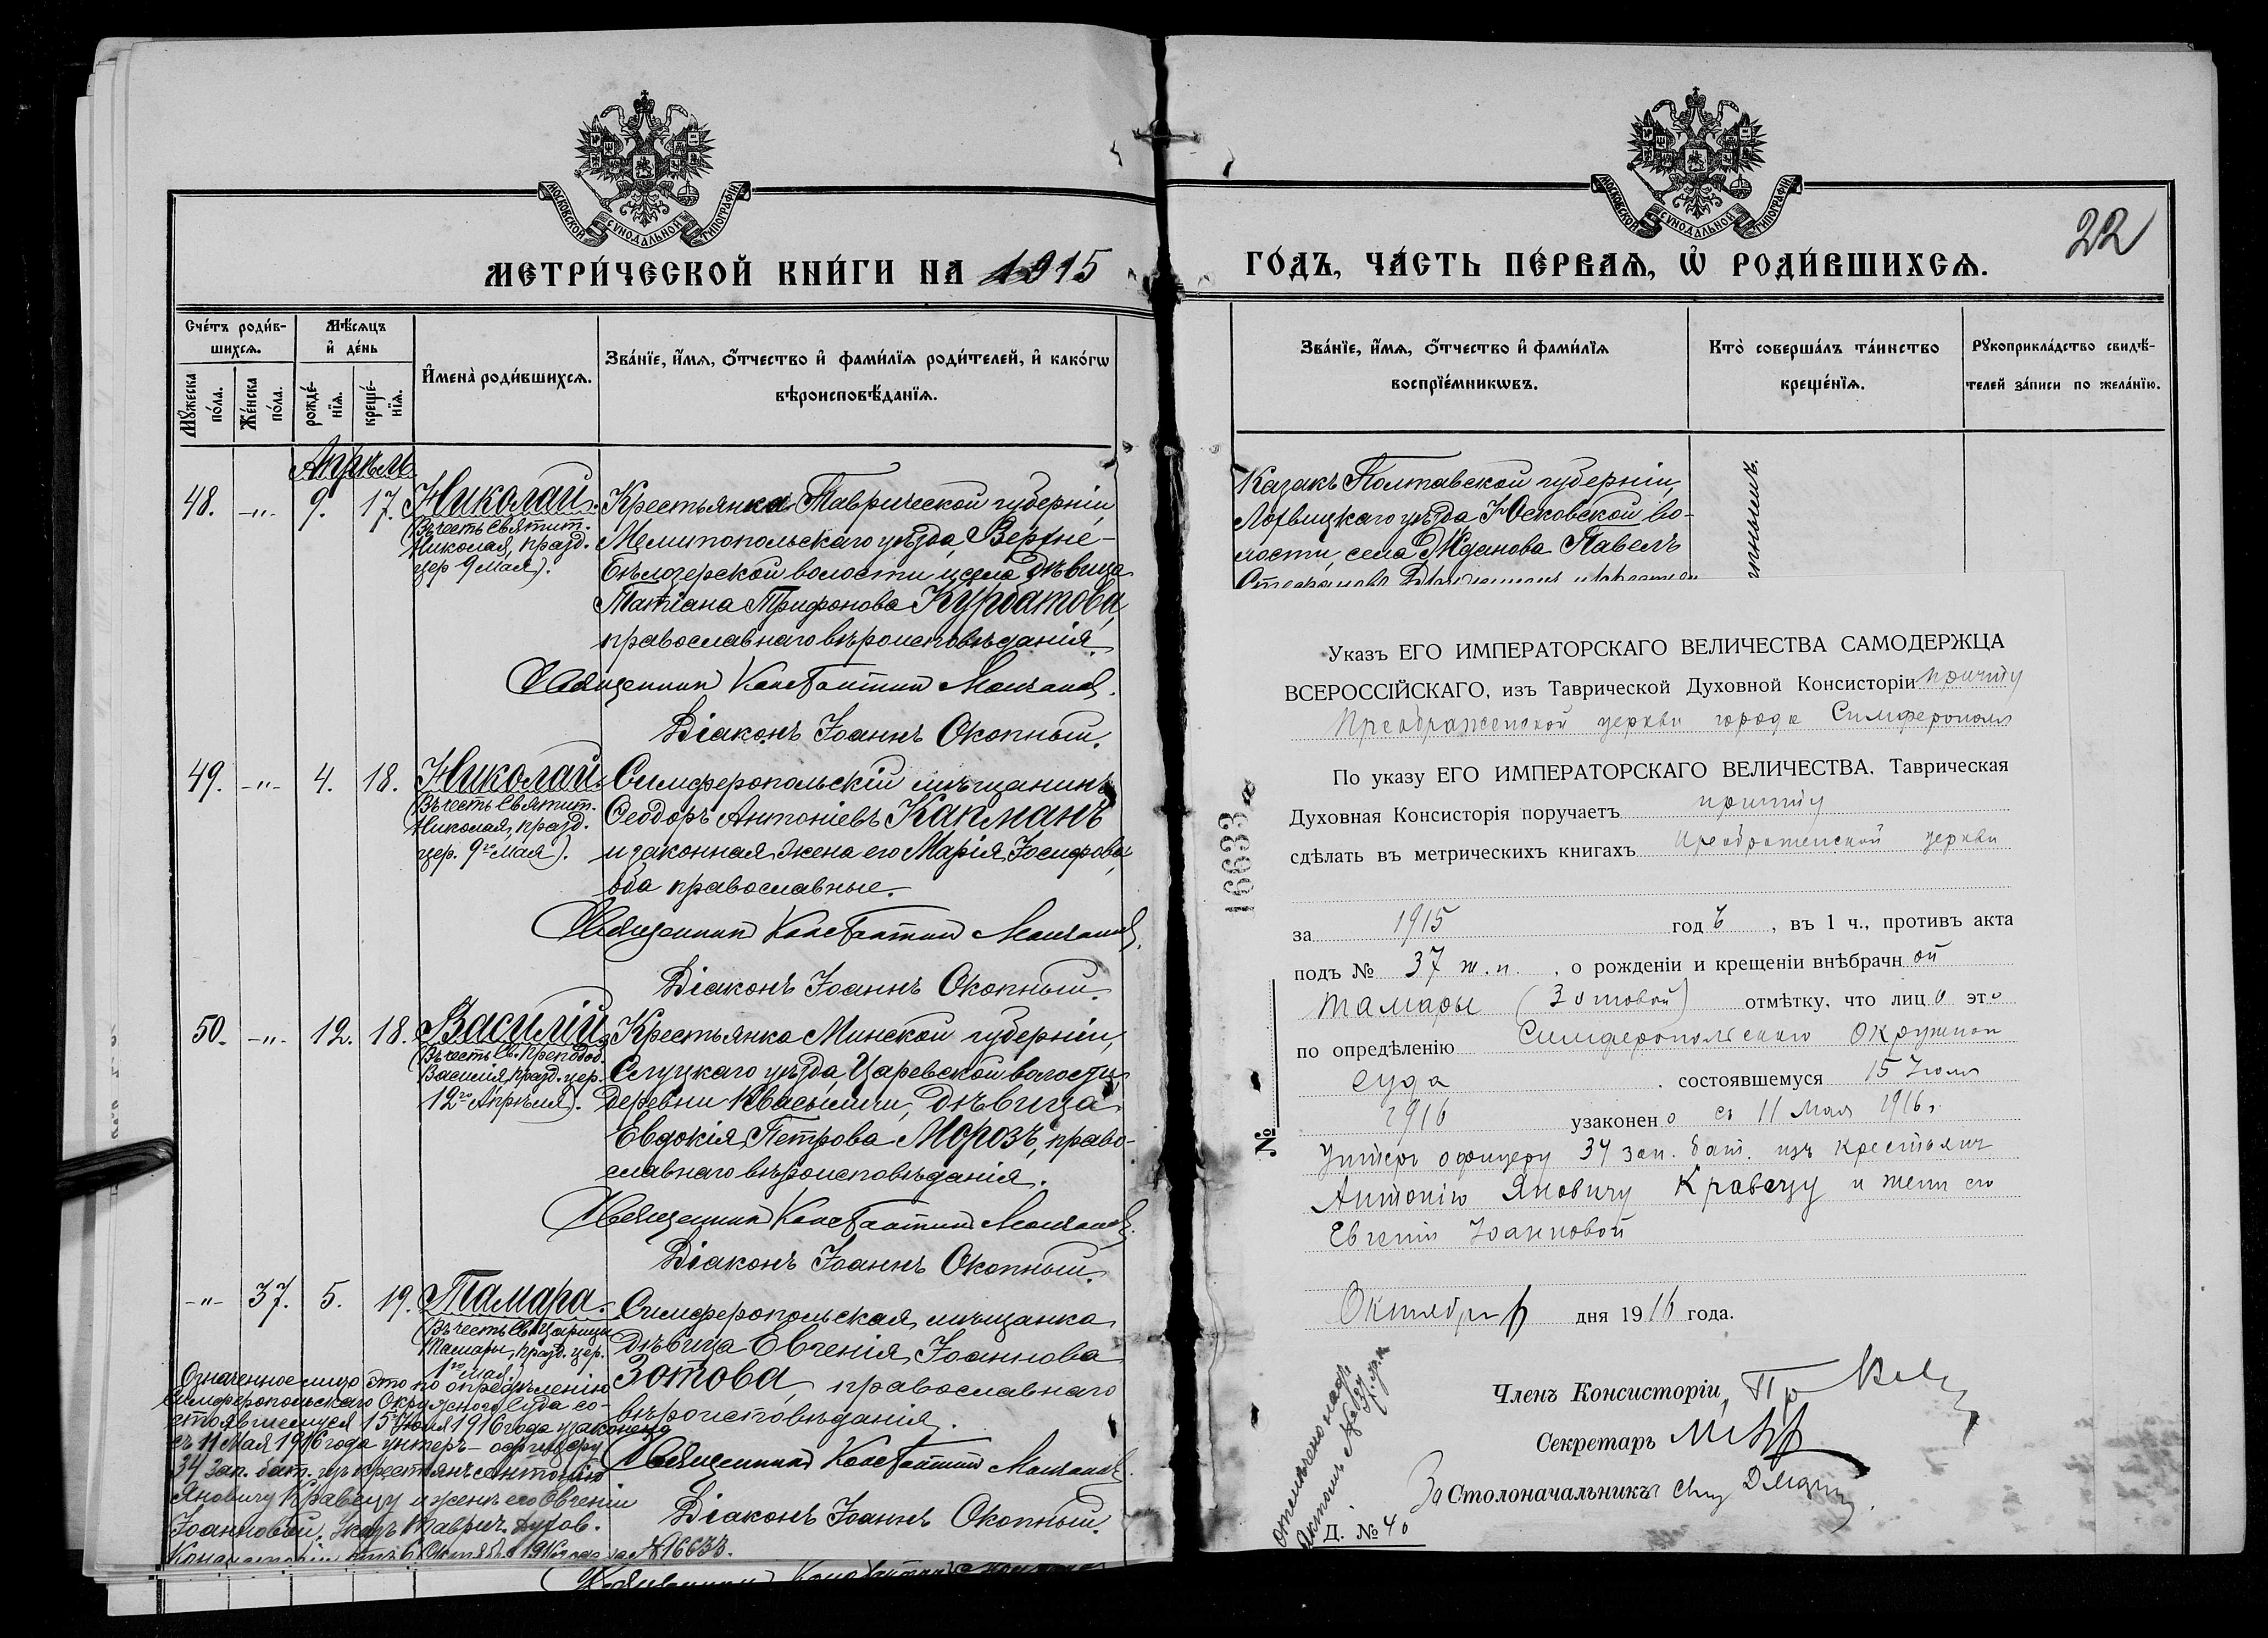 МОСКОВСКОЙ СУНОДАЛЬНОЙ ТИПОГРАФІИ
МЕТРИ́ЧЕСКОЙ КНИ́ГИ НА 1915
Счéтъ роди́в-
шихсѧ.
Мѣ́сѧцъ
и҆ дéнь
Мꙋ́жеска
по́ла.
Жéнска
по́ла.
рождé-
нїѧ.
крещé-
нїѧ.
И҆менà роди́вшихсѧ.
Звáнїе, и҆́мѧ, ѻ҆́тчество и҆ фами́лїѧ роди́телей, и҆ какóгѡ
вѣроисповѣ́данїѧ.
Апрѣль
48. -„- 9. 17. Николай.
(Въ честь Святит.
Николая, празд.
цер 9 мая).
Крестьянка Таврической губерніи,
Мелитопольскаго уѣзда, Верхне-
Бѣлозерской волости и села дѣвица
Татіана Трифонова Курбатова,
православнаго вѣроисповѣданія.
Священникъ Константинъ
Діаконъ Іоаннъ Окопный.
49. -„- 4. 18. Николай.
(Въ честь Святит.
Николая, празд.
цер. 9го Мая).
Симферопольскій мѣщанинъ
Ѳеодоръ Антоніевъ Капманъ
и законная жена его Марія Іосифова,
оба православные.
Священникъ Константинъ
Діаконъ Іоаннъ Окопный.
50. -„- 12. 18. Василій.
(Въ честь Св. Преподоб.
Василія, празд. цер.
12го Апрѣля).
Крестьянка Минской губерніи,
Слуцкаго уѣзда, Царевской волости,
деревни Квасыничи, дѣвица
Евдокія Петрова Морозъ, право-
славнаго вѣроисповѣданія.
Священникъ Константинъ
Діаконъ Іоаннъ Окопный.
-„- 37. 5. 19. Тамара.
(Въ честь Св. Царицы
Тамары, празд. цер.
1го мая)
Симферопольская мѣщанка
дѣвица Евгенія Іоаннова
Зотова, православнаго
вѣроисповѣданія.
Священникъ Константинъ
Діаконъ Іоаннъ Окопный.
Означенное лицо это по опредѣленію
Симферопольскаго Окружного Суда со-
стоявшемуся 15 Іюля 1916 года узаконено
съ 11 Мая 1916 года унтеръ-офицеру
34 Зап. бат. изъ крестьянъ Антонію
Яновичу Кравецу и женѣ его Евгеніи
Іоанновой. Указъ Таврич. Духов.
Консисторіи отъ 6 Октября 1916 года за № 16633.
МОСКОВСКОЙ СУНОДАЛЬНОЙ ТИПОГРАФІИ
22
ГÓДЪ, ЧÁСТЬ ПÉРВАѦ, Ѡ҆ РОДИ́ВШИХСѦ.
Звáнїе, и҆́мѧ, ѻ҆́тчество и҆ фами́лїѧ
воспрїéмникѡвъ.
Ктò совершáлъ тáинство
крещéнїѧ.
Рꙋкоприклáдство свидѣ́-
телей зáписи по желáнїю.
Казакъ Полтавской губерніи,
Лохвицкаго уѣзда Юсковской во-
лости, села Жданова Павелъ
Указъ ЕГО ИМПЕРАТОРСКАГО ВЕЛИЧЕСТВА САМОДЕРЖЦА
ВСЕРОССІЙСКАГО, изъ Таврической Духовной Консисторіи причту
Преображенской церкви города Симферополя
По указу ЕГО ИМПЕРАТОРСКАГО ВЕЛИЧЕСТВА. Таврическая
Духовная Консисторія поручаетъ причту
сдѣлать въ метрическихъ книгахъ Преображенской церкви
за 1915 годъ, въ 1 ч., противъ акта
подъ № 37 ж.п., о рожденіи и крещеніи внѣбрачной
Тамары (Зотовой) отмѣтку, что лицо это
по опредѣленію Симферопольскаго Окружного
Суда, состоявшемуся 15 Іюля
1916 узаконено съ 11 Мая 1916 г.
Унтеръ офицеру 34 зап. бат. изъ крестьянъ
Антонію Яновичу Кравецу и женѣ его
Евгеніи Іоанновой
Октября 6 дня 1916 года.
Членъ Консисторіи,
Секретарь
За Столоначальникъ
Д. № 40
16633
№